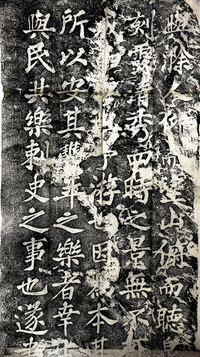 與滁人仰而望山俯而聽
刻露清秀四時之景無不
予游也因為本其
所以安其豐年之樂者幸
與民共樂刺史之事也遂